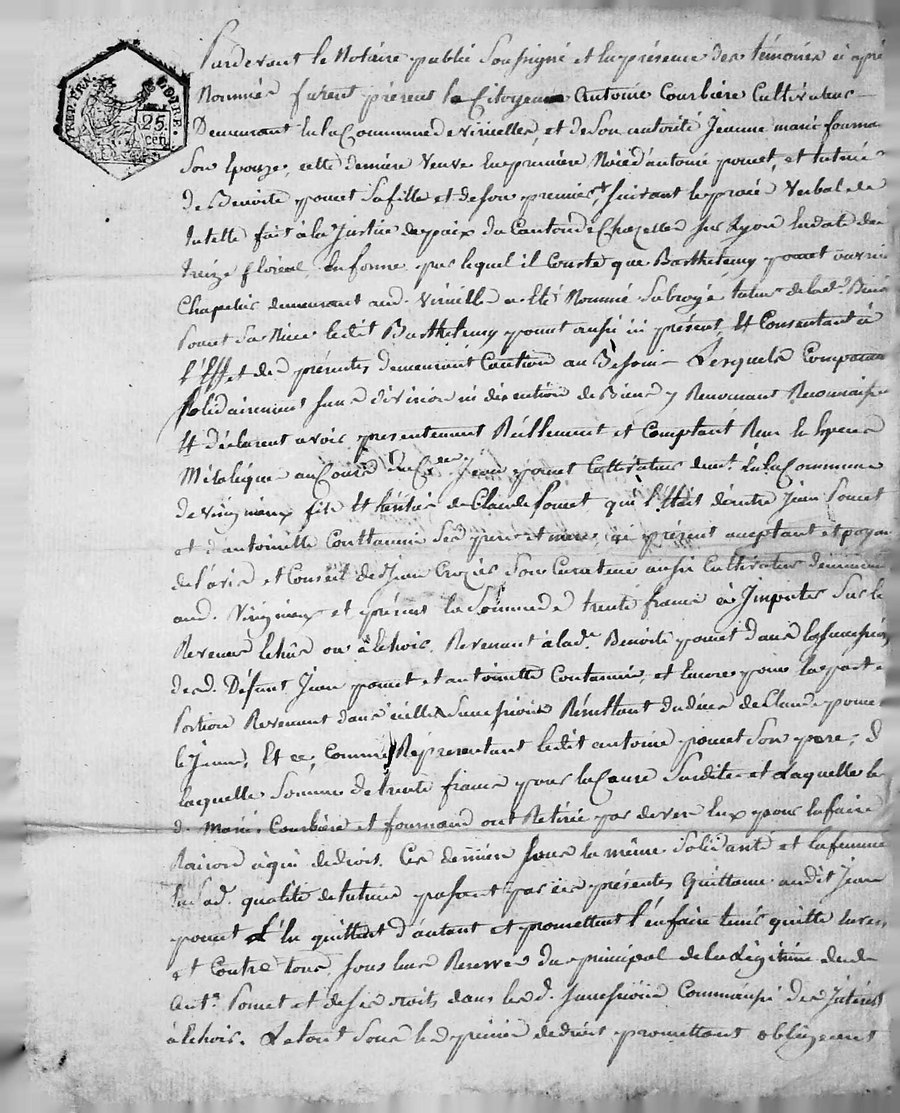 REP. FRA.
25
cen
Pardevant le Notaire public soussigné et en présence des témoins ci apré
Nommés furent présent le Citoyen Antoine Courbière Cultivateur
Demeurant en la Commune de viricelles, et de son autorité Jeanne marie fourna
son Epouze, cette derniere Veuve en première Nôce d'antoine ponet, et tutrice
de Benoite ponet sa fille et de son premier lt, suivant le procé Verbal de
tutelle fait à la Justice de paix du Canton de Chazelles sur Lyon en date du
treize floreal en forme par lequel il Conste que Barthelemy ponet ouvrier
Chapelier demeurant aud. Viricelle a Eté Nommé subrogé tuteur de lad. Benoi
ponet sa Niece ledit Barthelemy ponet aussi ici présent, Et Consentant à
l'Effet des présentes demeurant Caution au Besoin Lesquels Comparants
solidairement sans division ni discution de Biens y Renoncant Reconnaissent
Et déclarent avoir presentement Réellement et Comptant Reçu en Especes
Métalique au Cours du Cen Jean ponet Cultivateur demt. En la Commune
de fils Et héritier de Claude ponet qui l'Etait de autre Jean Ponet
et d'antoinette Couttanin ses pere et mere, ici présent acceptant et payan
de l'avis et Conseil de Jean Crozier son Curateur aussi Cultivateur demeurant
aud. et présent la somme de trente francs à Imputer sur le
Revenus Echûs ou à Echoir. Revenant à lad. Benoite ponet dans la succession
des d. Défunt Jean ponet et antoinette Coutanin, et Encore pour la part et
portion Revenant dans icelles successions Résultant du décès de Claude ponet
le Jeune, Et ce, Comme Représentant ledit antoine ponet son pere; d
laquelle somme de trente francs pour la Cause susdite et Laquelle le
d. Mariés Courbière et fournand ont Retirée par devers Eux pour la faire
Raison à qui de droit. Ces derniers sous la même solidarité et la femme
En sad. qualité de tutrice passent par ces présentes Quittance audit Jean
ponet L'En quittent d'autant et promettent l'en faire tenir quitte Envers
et Contre tous sous leur Reserve du principal de la Légitime dud.
Ant. Ponet et de ses droits dans lesd. successions Commencés des Intérêts
à Echoir. Le tout sous les peines de droit promettant obligeant